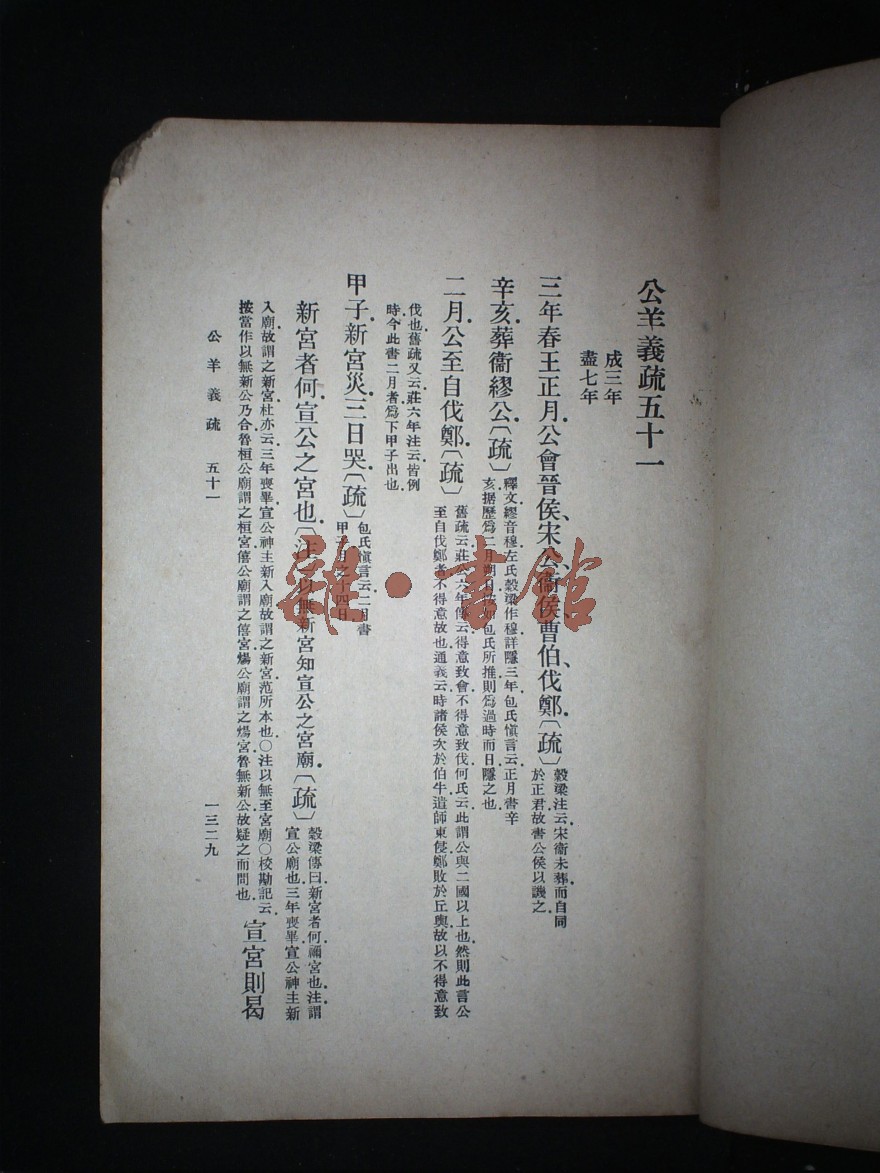 公羊義疏五十一
成三年
盡七年
三年春王正月.公會晉侯、宋公、衞侯、曹伯、伐鄭.〔疏〕
穀梁注云.宋衞未葬.而自同
於正君.故書公侯以譏之.
辛亥.葬衞繆公.〔疏〕
釋文.繆音穆.左氏穀梁作穆.詳隱三年.包氏愼言云.正月書辛
亥.据歷爲二月
包氏所推.則爲過時而日隱之也.
二月.公至自伐鄭.〔疏〕
舊疏云.莊六年傳云.得意致會.不得意致伐.何氏云.此謂公與二國以上也.然則此言公
至自伐鄭者.不得意故也.通義云.時諸侯次於伯牛.遣師東侵鄭.敗於丘輿.故以不得意致
伐也.舊疏又云.莊六年注云.皆例
時.今此書二月者.爲下甲子出也.
甲子.新宮災.三日哭.〔疏〕
包氏愼言云.二月書
甲子.月之十四日.
新宮者何.宣公之宮也.〔注〕以無新宮.知宣公之宮廟.〔疏〕
穀梁傳曰.新宮者何.禰宮也.注.謂
宣公廟也.三年喪畢.宣公神主新
入廟.故謂之新宮.杜亦云.三年喪畢.宣公神主新入廟.故謂之新宮.范所本也.○注以無至宮廟.○校勘記云.
按當作以無新公乃合.魯桓公廟謂之桓宮.僖公廟謂之僖宮.煬公廟謂之煬宮.魯無新公.故疑之而問也.
宣宮則曷
公羊義疏 五十一
一三二九
雜·書館